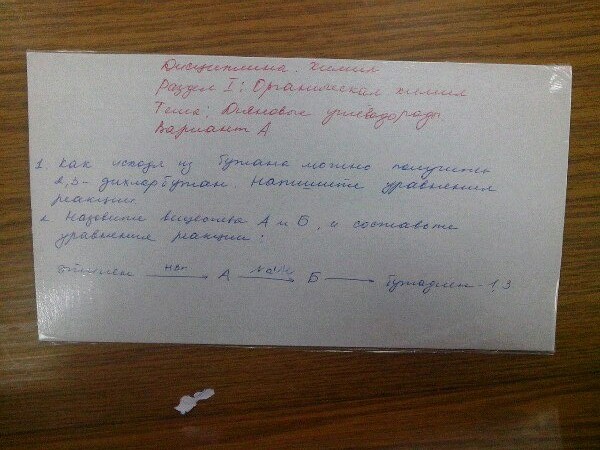 Дисциплина: химия
Раздел I: Органическая химия
Тема: Диеновые углеводороды.
Вариант А
1. Как исходя из бутана можно получить
2,3-дихлорбутан. Напишите уравнения
реакции.
2. Назовите вещества А и Б, и составьте
уравнения реакции:
этилен HBr А Б бутадиен-1,3.